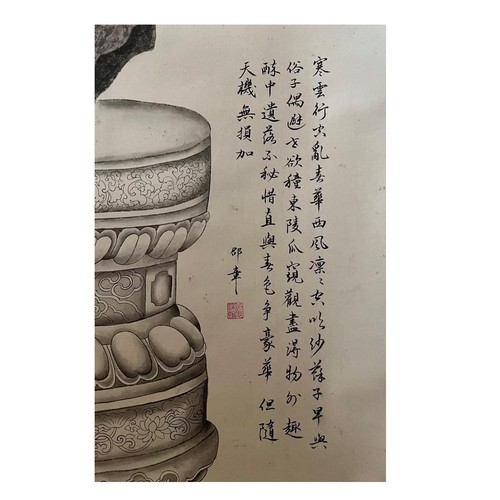 寒雲行空亂春華西風凜〻空吹紗蘇子早與
俗子偶避世欲種東陵瓜窺觀盡得物外趣
醉中遺落不秘惜直與春色爭豪華但隨
天機無損加
邵章